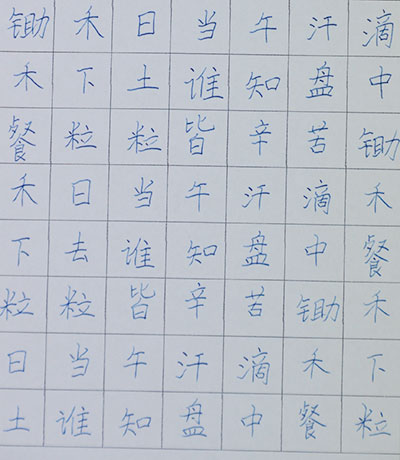 锄禾日当午汗滴
禾下土谁知盘中
餐粒粒皆辛苦锄
禾日当午汗滴禾
下去谁知盘中餐
粒粒皆辛苦锄禾
日当午汗滴禾下
土谁知盘中餐粒